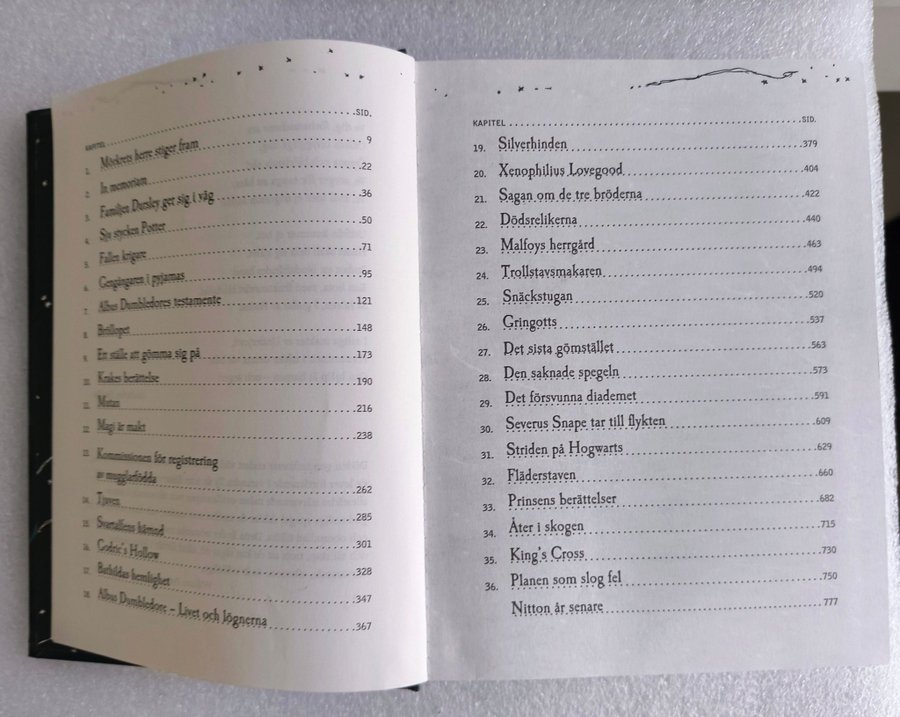 KAPITEL SID.
1. Mörkrets herre stiger fram 9
2. In memoriam 22
3. Familjen Dursley ger sig i väg 36
4. Sju stycken Potter 50
5. Fallen krigare 71
6. Gengångaren i pyjamas 95
7. Albus Dumbledores testamente 121
8. Bröllopet 148
9. Ett ställe att gömma sig på 173
10. Krakes berättelse 190
11. Mutan 216
12. Magi är makt 238
13. Kommissionen för registrering
av mugglarfödda 262
14. Tjuven 285
15. Svartalfens hämnd 301
16. Godric's Hollow 328
17. Bathildas hemlighet 347
18. Albus Dumbledore – Livet och lögnerna 367
KAPITEL SID.
19. Silverhinden 379
20. Xenophilius Lovegood 404
21. Sagan om de tre bröderna 422
22. Dödsrelikerna 440
23. Malfoys herrgård 463
24. Trollstavsmakaren 494
25. Snäckstugan 520
26. Gringotts 537
27. Det sista gömstället 563
28. Den saknade spegeln 573
29. Det försvunna diademet 591
30. Severus Snape tar till flykten 609
31. Striden på Hogwarts 629
32. Fläderstaven 660
33. Prinsens berättelser 682
34. Åter i skogen 715
35. King's Cross 730
36. Planen som slog fel 750
Nitton år senare 777